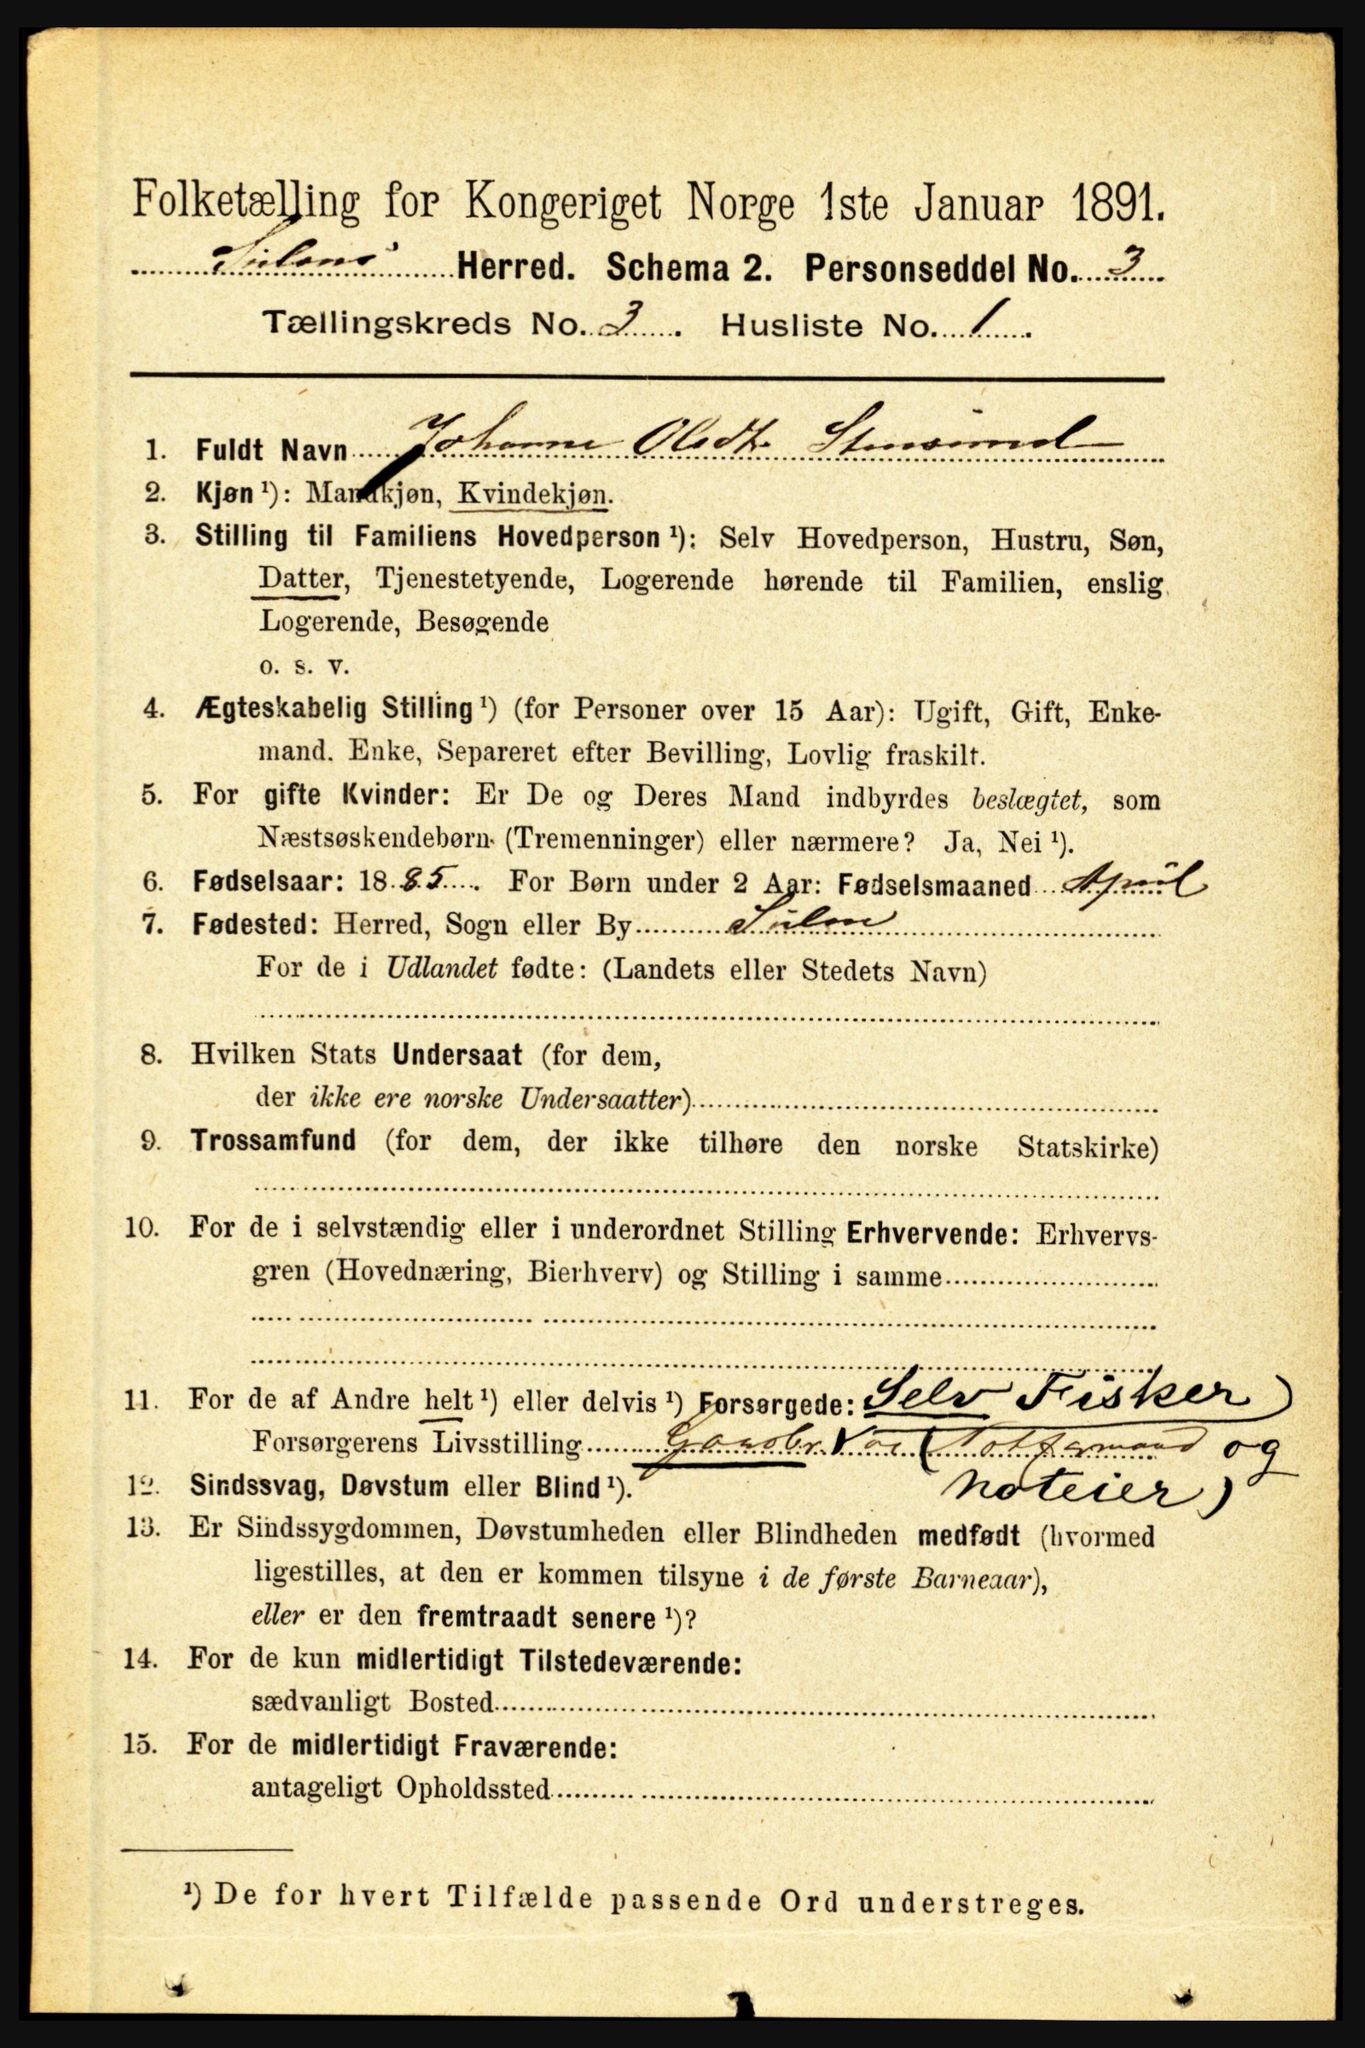 Folketælling for Kongeriget Norge 1ste Januar 1891.
Sulens Herred. Schema 2. Personseddel No. 3
Tællingskreds No. 3. Husliste No. 1.
1. Fuldt Navn Johanne Olsdt. Stensund
2. Kjøn ¹): Mandkjøn, Kvindekjøn.
3. Stilling til Familiens Hovedperson ¹): Selv Hovedperson, Hustru, Søn,
Datter, Tjenestetyende, Logerende hørende til Familien, enslig
Logerende, Besøgende
o. s. v.
4. Ægteskabelig Stilling ¹) (for Personer over 15 Aar): Ugift, Gift, Enke-
mand. Enke, Separeret efter Bevilling, Lovlig fraskilt.
5. For gifte Kvinder: Er De og Deres Mand indbyrdes beslægtet, som
Næstsøskendebørn (Tremenninger) eller nærmere? Ja, Nei ¹).
6. Fødselsaar: 1885. For Børn under 2 Aar: Fødselsmaaned April
7. Fødested: Herred, Sogn eller By Sulen
For de i Udlandet fødte: (Landets eller Stedets Navn)
8. Hvilken Stats Undersaat (for dem,
der ikke ere norske Undersaatter)
9. Trossamfund (for dem, der ikke tilhøre den norske Statskirke)
10. For de i selvstændig eller i underordnet Stilling Erhvervende: Erhvervs-
gren (Hovednæring, Bierhverv) og Stilling i samme
11. For de af Andre helt ¹) eller delvis ¹) Forsørgede: Selv Fisker)
Forsørgerens Livsstilling Gaardbr. og
noteier)
12. Sindssvag, Døvstum eller Blind ¹).
13. Er Sindssygdommen, Døvstumheden eller Blindheden medfødt (hvormed
ligestilles, at den er kommen tilsyne i de første Barneaar),
eller er den fremtraadt senere ¹)?
14. For de kun midlertidigt Tilstedeværende:
sædvanligt Bosted
15. For de midlertidigt Fraværende:
antageligt Opholdssted
¹) De for hvert Tilfælde passende Ord understreges.